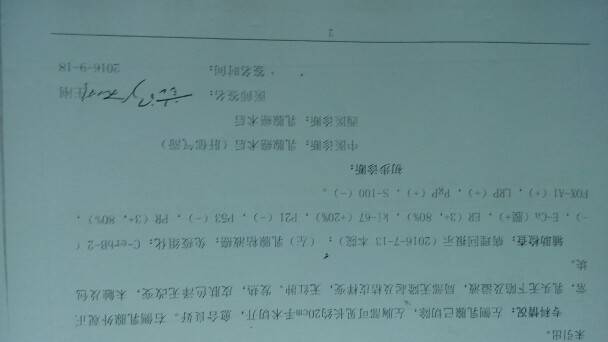 未引出。
专科情况：左侧乳腺已切除，左胸部可见长约20cm手术切开，愈合良好。右侧乳腺外观正
常，乳头无下陷及溢液，局部无隆起及桔皮样变，无红肿、发热，皮肤色泽无改变，未触及包
块。
辅助检查：病理回报示（2016-7-13 本院）：（左）乳腺粘液癌；免疫组化：C-erbB-2（
-），E-Ca（膜+），ER（3+，80%），ki-67（+20%），P21（-），P53（-），PR（3+，80%），
FOX-A1（+），LRP（+），PgP（+），S-100（-）。
初步诊断：
中医诊断：乳腺癌术后（肝郁气滞）
西医诊断：乳腺癌术后
医师签名：
签名时间：2016-9-18
2